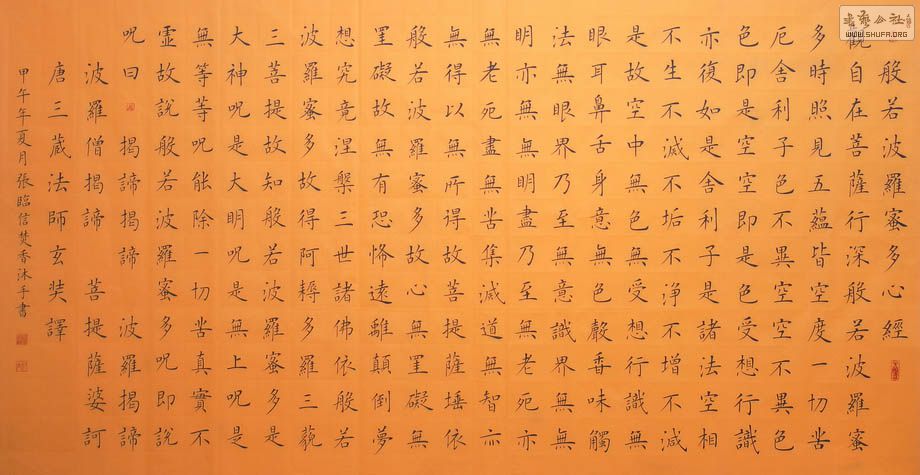 般若波羅蜜多心經
觀自在菩薩行深般若波羅蜜
多時照見五蘊皆空度一切苦
厄舍利子色不異空空不異色
色即是空空即是色受想行識
亦復如是舍利子是諸法空相
不生不滅不垢不淨不增不減
是故空中無色無受想行識無
眼耳鼻舌身意無色聲香味觸
法無眼界乃至無意識界無無
明亦無無明盡乃至無老死亦
無老死盡無苦集滅道無智亦
無得以無所得故菩提薩埵依
般若波羅蜜多故心無罣礙無
罣礙故無有恐怖遠離顛倒夢
想究竟涅槃三世諸佛依般若
波羅蜜多故得阿耨多羅三藐
三菩提故知般若波羅蜜多是
大神呪是大明呪是無上呪是
無等等呪能除一切苦真實不
虛故說般若波羅蜜多呪即說
呪曰 揭諦揭諦 波羅揭諦
波羅僧揭諦 菩提薩婆訶
唐三藏法師玄奘譯
甲午年夏月張臨信焚香沐手書
書藝公社
WWW.SHUFA.ORG